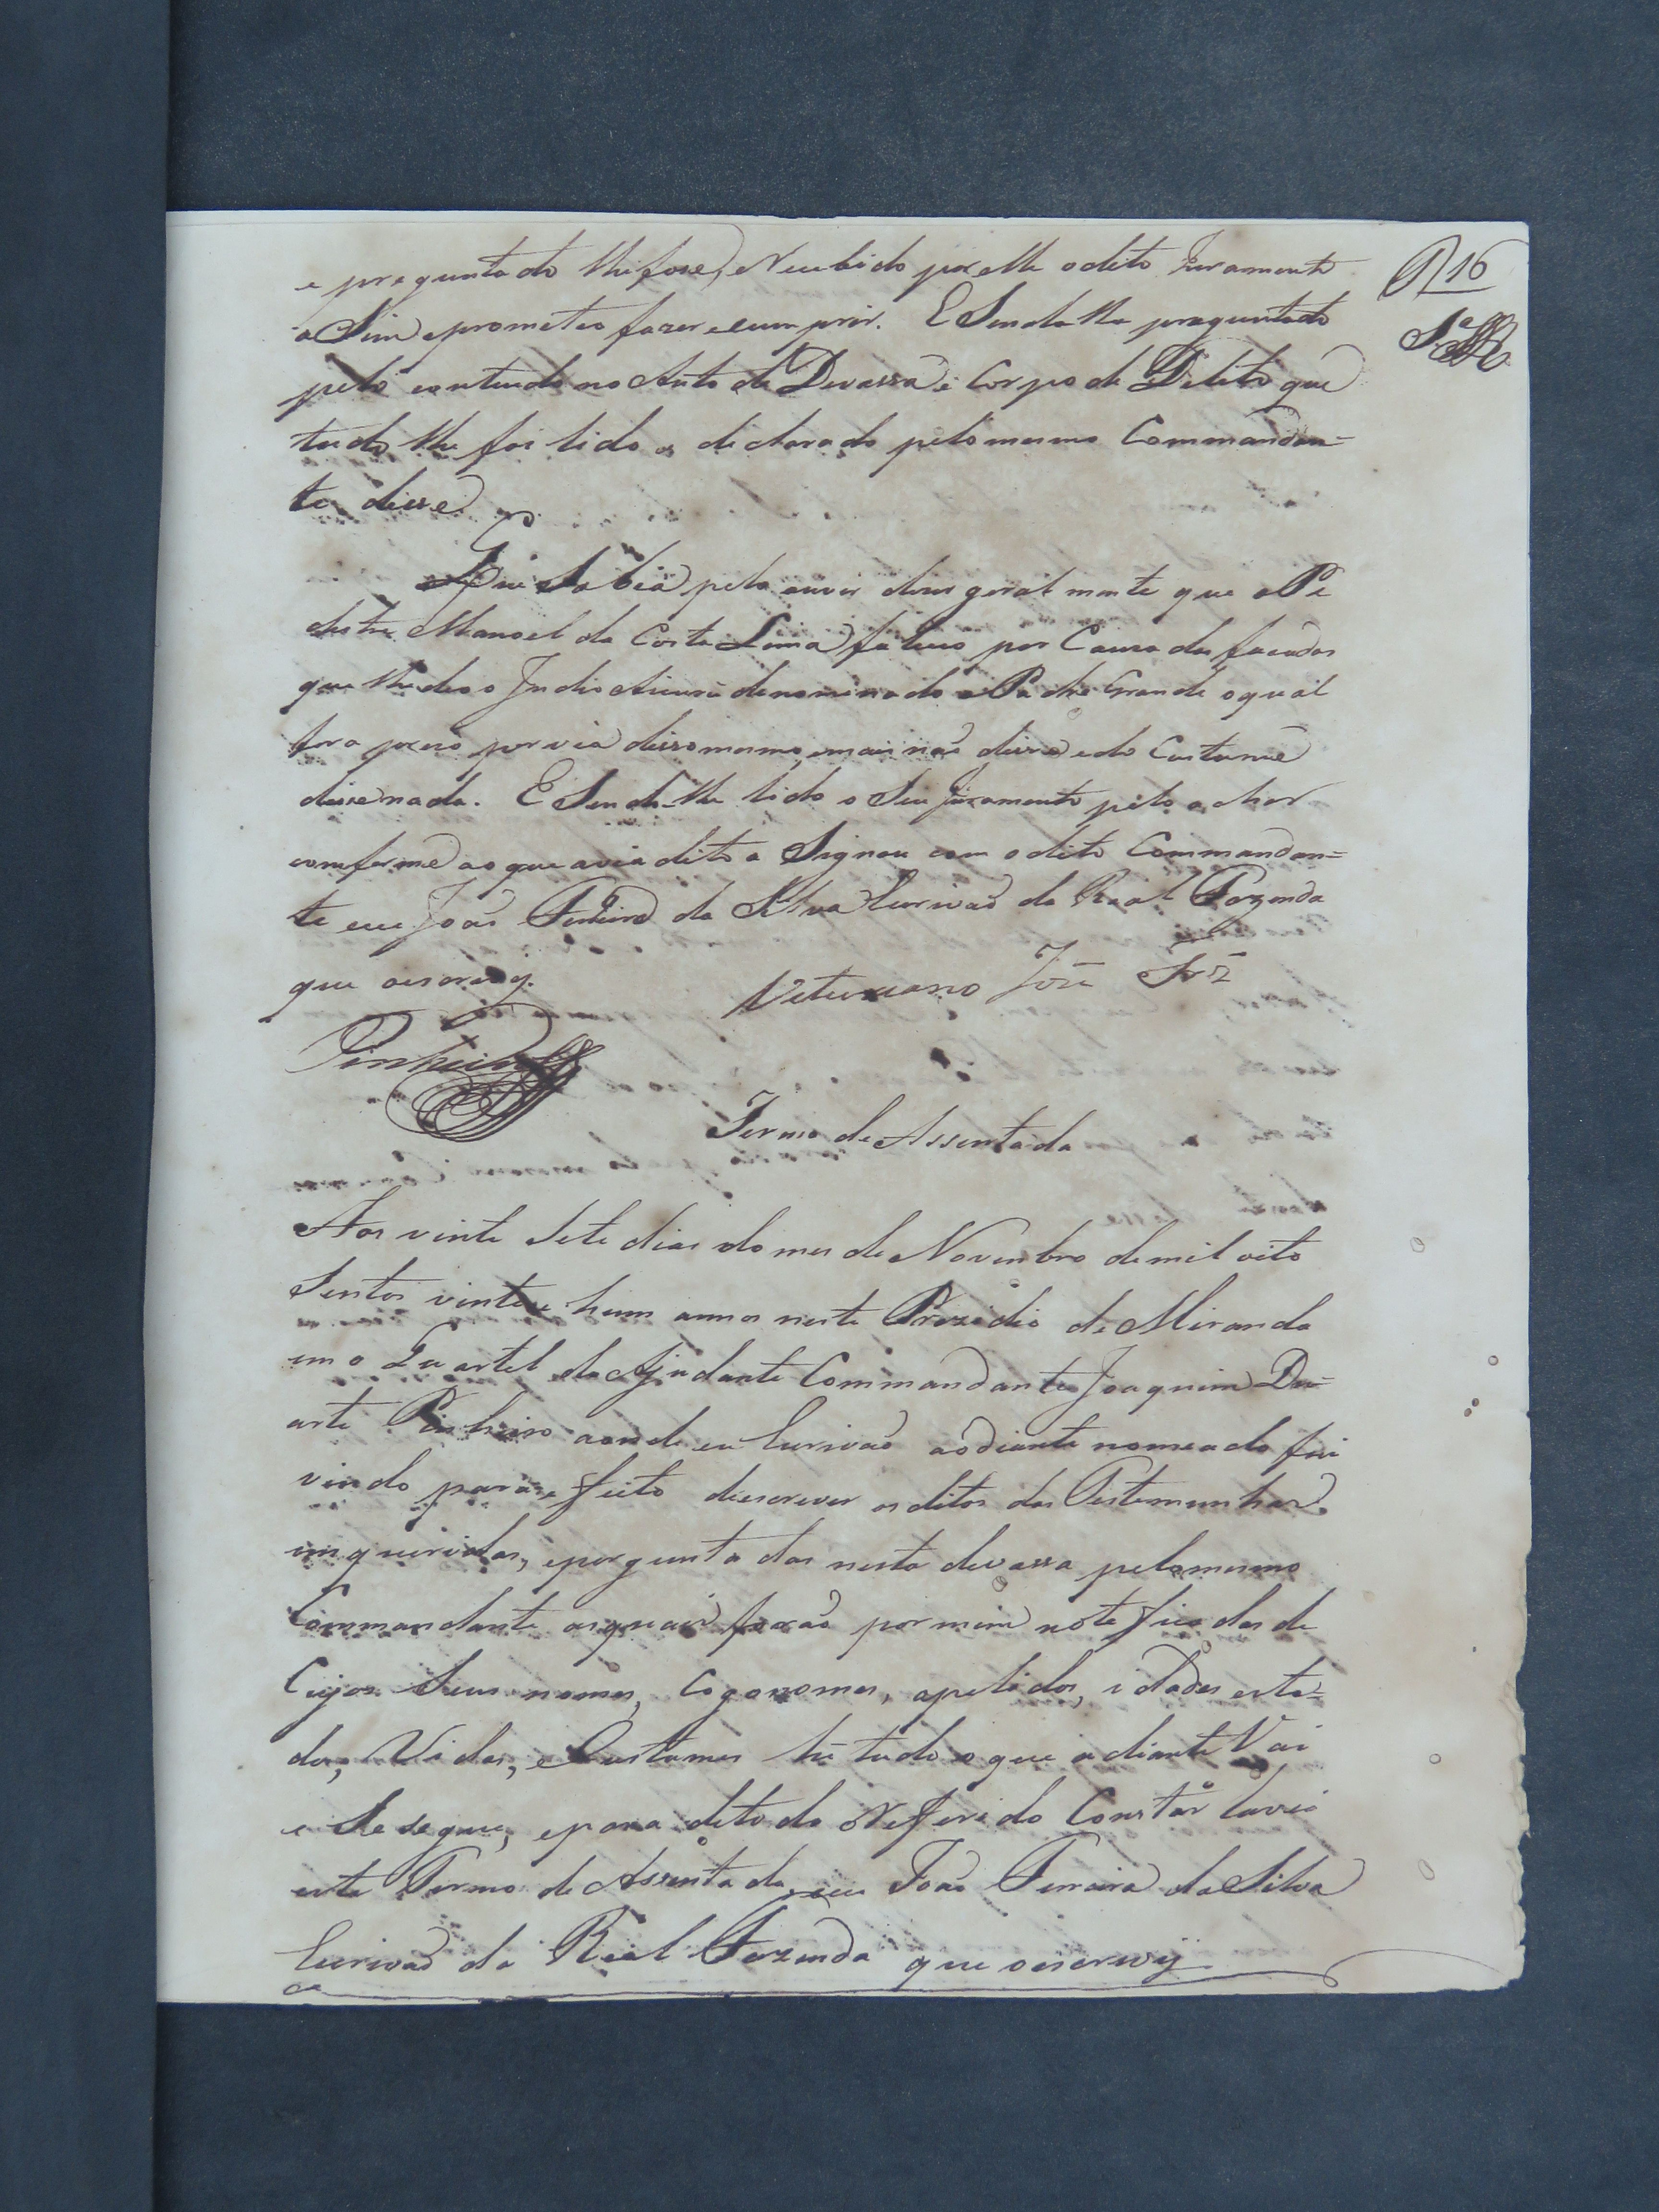 16
e preguntado lhe fose, e Recebido por elle o dito Juramento
a Sim o prometeo fazer e cumprir. E Sendolhe preguntado
pelo contendo no Auto de Devassa e Corpo de Delito que
tudo lhe foi lido e declarado pelo mesmo Commandan=
te disse
Que Sabia pelo ouvir dizer geralmente que o Pe
destre Manoel da Costa Lima faleceo por Causa das facadas
que lhe deo o Indio denominado Padre Grande o qual
fora prezo por via disso mesmo, e mais não disse e do Custume
disse nada. E Sendo-lhe lido o Seu Juramento pelo achar
comforme ao que avia dito a Signou com o dito Commandan=
te eu João Ferreira da Silva Escrivão da Real Fazenda
que oescrevy.
Veturiano José Frz
Pinheiro
Termo de Assentada
Aos vinte Sete dias do mes de Novembro de mil oito
Sentos vinte e hum annos neste Prezidio de Miranda
em o Quartel do Ajudante Commandante Joaquim Du=
arte Pinheiro aonde eu Escrivão ao diante nomeado fui
vindo para efeito de escrever os ditos das Testemunhas
imqueridas, e perguntadas nesta devassa pelo mesmo
Commandante as quais forão por mim noteficadas de
Cujos Seus nomes, Cogonomes, apelidos, idades esta=
dos, Vidas, e Custumes hé tudo o que adiante Vai
e Se segue, e para de todo o Referido Constar lavrei
este Termo de Assentada, eu João Ferreira da Silva
Escrivão da Real Fazenda que oescrevy